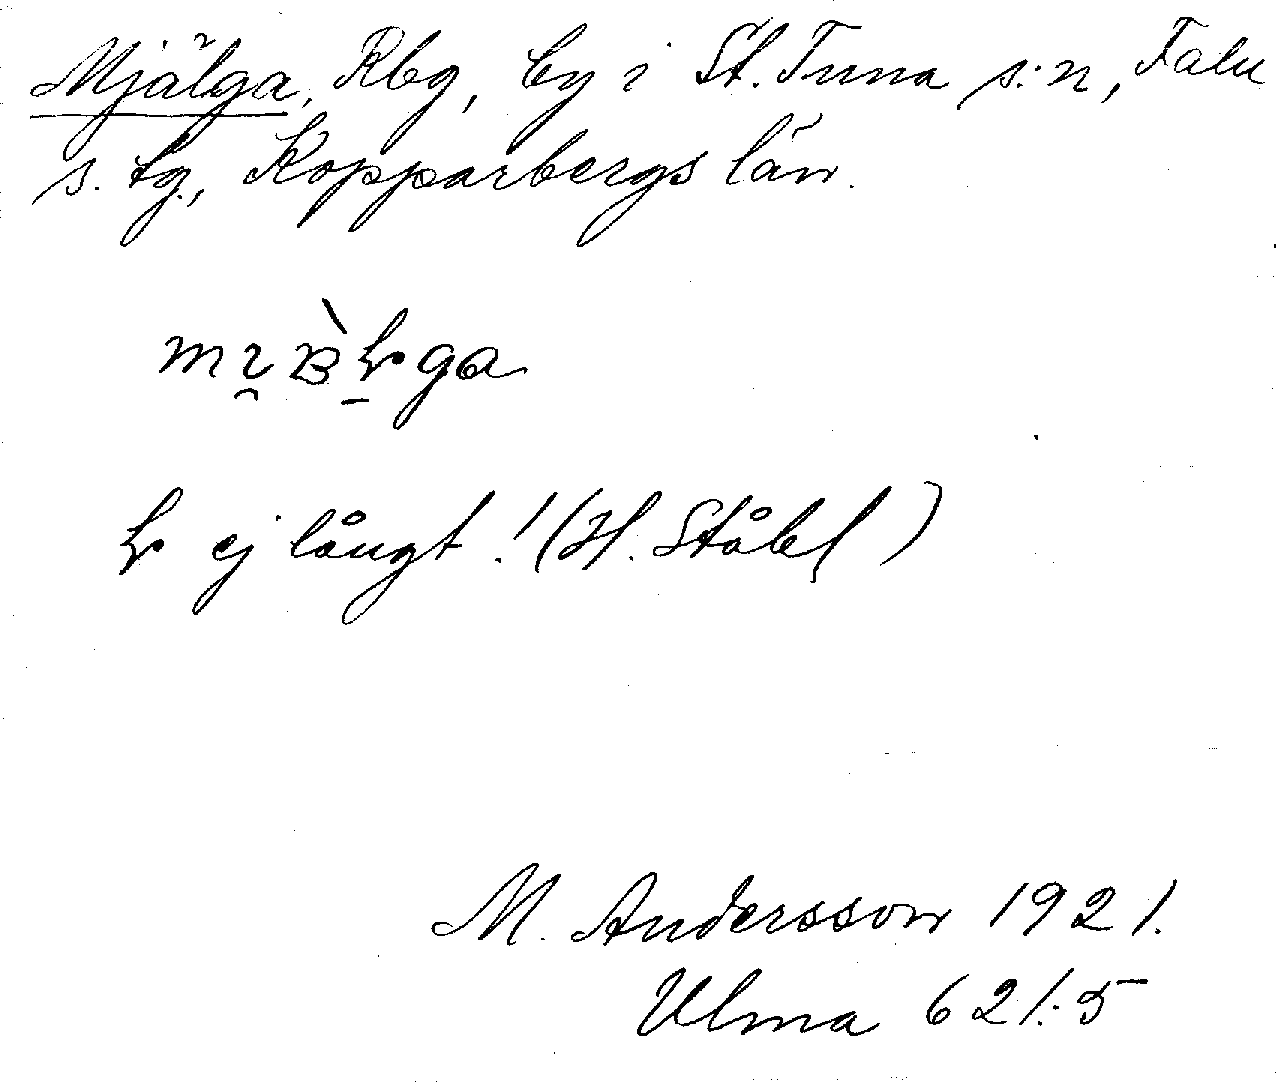 Mjälga, Rbg, by i St. Tuna s:n, Falu
s. tg., Kopparbergs län.
ej långt! (H. Ståbl)
M. Andersson 1921.
Ulma 621:5